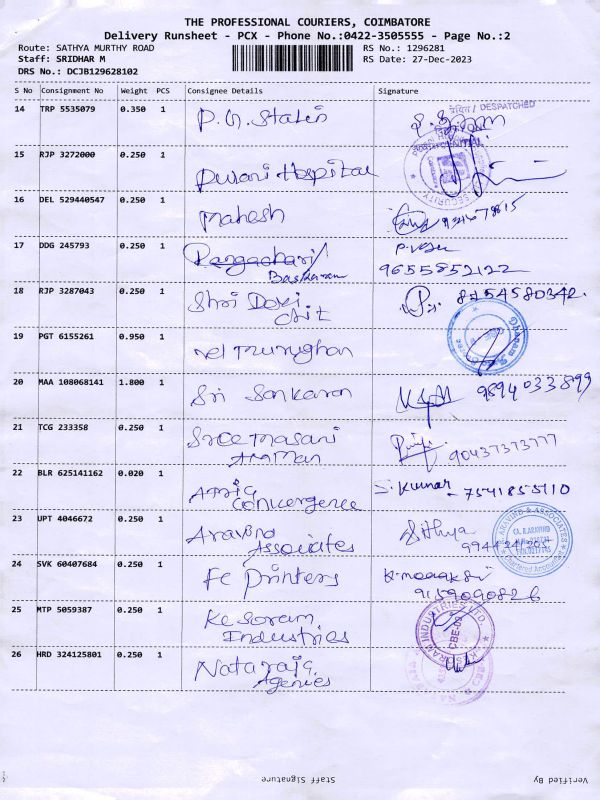 THE PROFESSIONAL COURIERS, COIMBATORE
Delivery Runsheet - PCX - Phone No.:0422-3505555 - Page No.:2
Route: SATHYA MURTHY ROAD RS No.: 1296281
Staff: SRIDHAR M RS Date: 27-Dec-2023
DRS No.: DCJB129628102
S No Consignment No Weight PCS Consignee Details Signature
14 TRP 5535079 0.350 1 P.G. Stalin
DESPATCHED
15 RJP 3272000 0.250 1
Hospital
SECURITY
16 DEL 529440547 0.250 1 Mahesh
17 DDG 245793 0.250 1 Rangachari
Baskaran 9655852122
18 RJP 3287043 0.250 1 Shri Devi 8754580342.
Chit
Dhanam
19 PGT 6155261 0.950 1 Vel Murughan
20 MAA 108068141 1.800 1 Sri Sankaran 9894033899
21 TCG 233358 0.250 1 Sree Masani
Amman 90437373777
22 BLR 625141162 0.020 1 S. Kumar
Convergence - 7541855110
23 UPT 4046672 0.250 1 Aravind Sithya
Associates 9944241205
ARAVIND & ASSOCIATES
Chartered Accountants
24 SVK 60407684 0.250 1 Fc Printers
9159090826
25 MTP 5059387 0.250 1 Kesoram
Industries
KESORAM INDUSTRIES LTD.
CBE-09
26 HRD 324125801 0.250 1 Nataraja
Agencies
Staff Signature Verified By